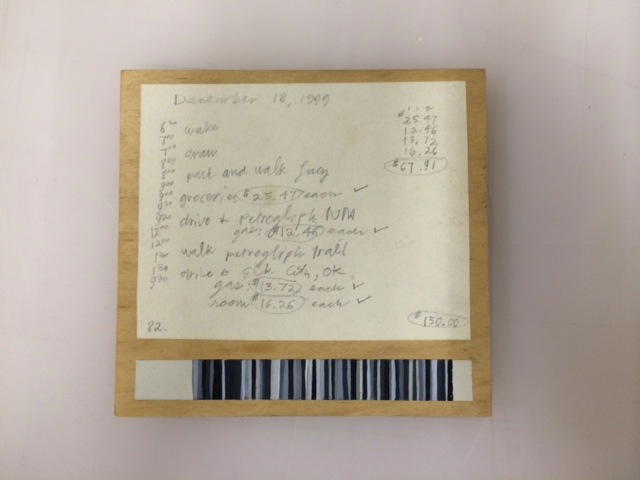 December 18, 1999
1 1 2
$25.47
12.46
13.72
16.26
$67.91
6:30 wake
7:00
7:00 draw
8:00
8:00 pack and walk Lucy
9:00
9:00 groceries $25.47 each ✓
9:30
9:30 drive to petroglyph NM
gas: $12.46 each ✓
12:00
12:00 walk petroglyph trail
1:30
1:30 drive to Elk City, OK
9:30
gas: $13.72 each ✓
room $16.26 each ✓
82.
$150.00